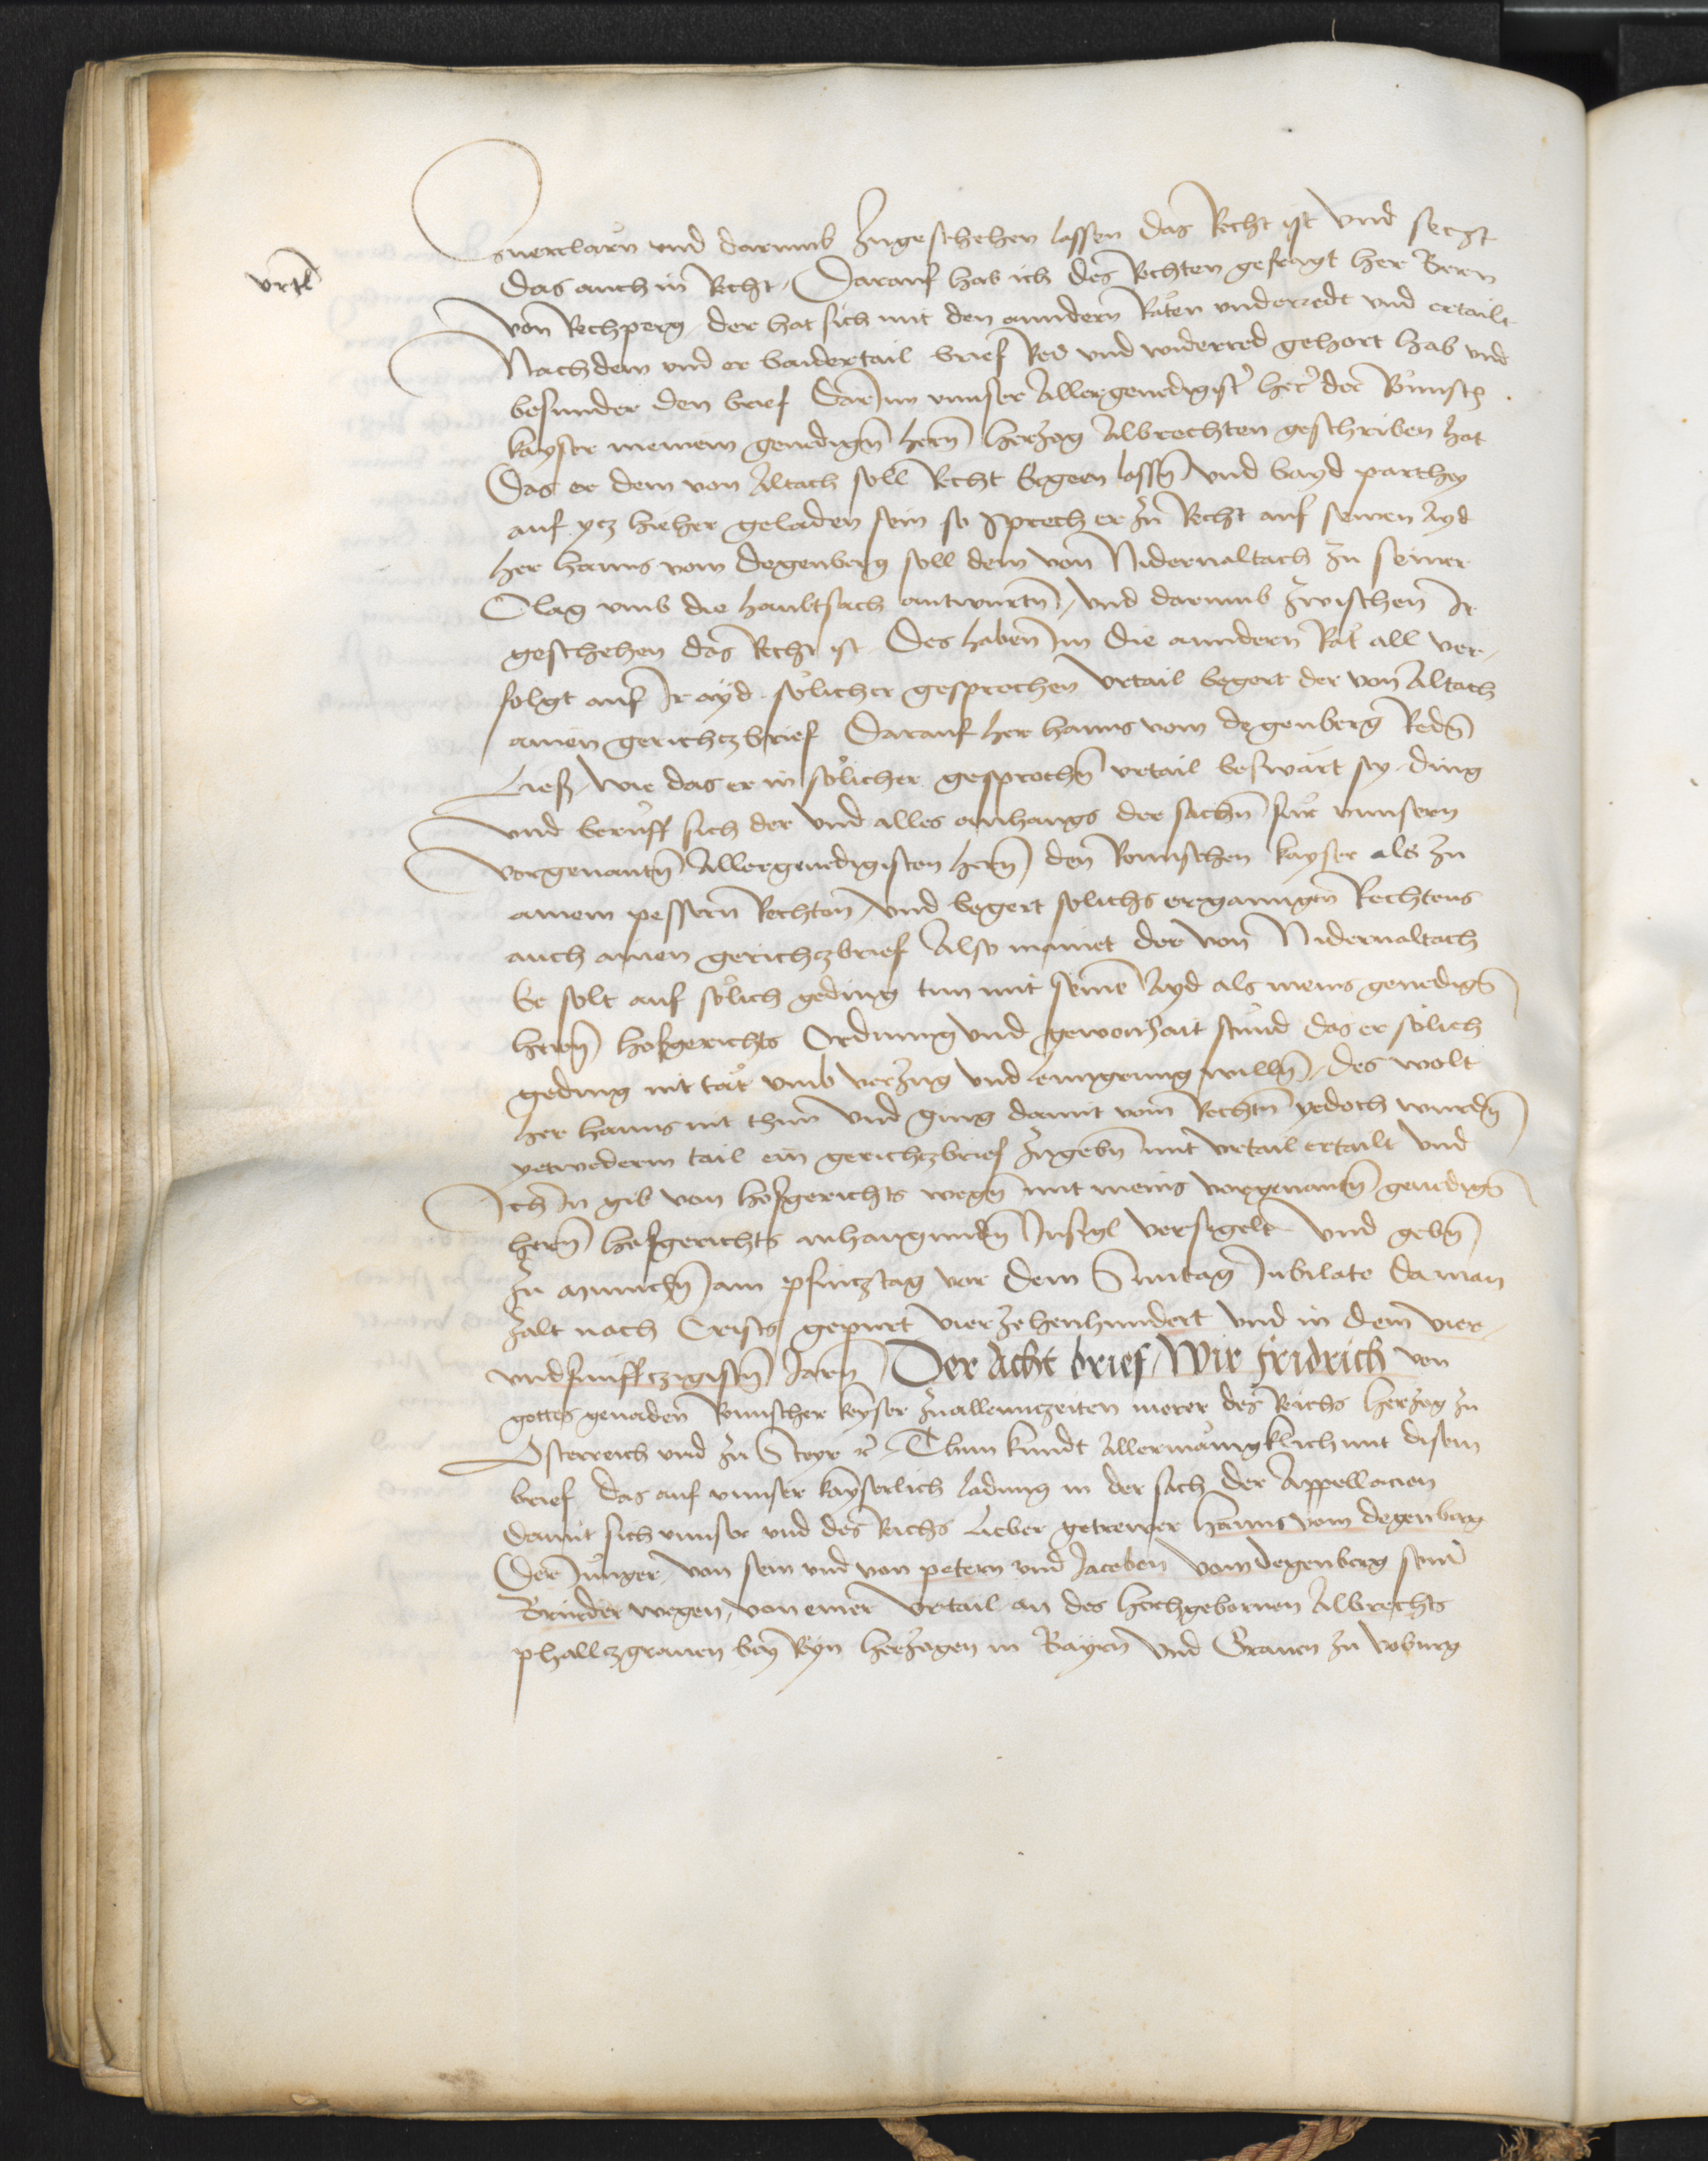 zuerclarn vnd darumb zugeschehen lassen das Recht ist vnd seczt
vrtl
das auch in Recht Darauf hab ich des Rechten gefragt her Bern
von Rechperg der hat sich mit den anndern Räten vnderredt vnd ertailt
Nachdem vnd er baidertail brief Red vnd widerred gehort hab vnd
besunder den brief Darinn vnnser Allergenedigister her der Römisch
kayser meinem genedigen hern herzog Albrechten geschriben hat
Das er dem von Altach soll Recht ergeen lassen vnd bayd parthey
auf ytz hieher geladen sein so sprech er zu Recht auf seinen ayd
her hanns vom Degenberg soll dem von Nidernaltach zu seiner
Clag vmb die haubtsach antwurten vnd darumb zwischen Ir
geschehen das Recht ist Des haben im die anndern Rät all ver¬
folgt auf Ir ayd sölicher gesprochen vrtail begert der von Altach
ainen gerichtzbrief Darauf her hanns vom degenberg Reden
Ließ wie das er in sölicher gesprochen vrtail beswärt sey ding
vnd berüff sich der vnd alles anhangs der sachen für vnnsern
vorgenanten Allergenedigisten hern den Römischen kayser als zu
ainem pessern Rechten vnd begert solichs erganngen Rechtens
auch ainen gerichtzbrief Also mainet der von Nidernaltach
Er solt auf sölich geding tun mit seinem Ayd als meins genedigen
hern hofgerichts Ordnung vnd gewonhait stund das er sölich
geding nit tät vmb verzug vnd lenngrung willen Des wolt
her hanns nit thun vnd ging damit vom Rechten yedoch wurden
yetwederm tail ein gerichtzbrief zugeben mit vrtail ertailt vnd
Ich In gib von hofgerichts wegen mit meins vorgenanten genedigen
hern hofgerichts anhangunden Insigl versigelt Vnd geben
zu munchen am pfincztag vor dem Sunntag Jubilate Da man
zalt nach Crists gepurt vierzehenhundert vnd in dem vier¬
vndfunffczigisten Jaren Der Acht brief Wir fridrich von
gottes genaden Romischer keyser zuallennczeiten merer des Reichs herzog zu
Osterreich vnd zu Steyr etc Thun kundt Allermäniklich mit disem
brief das auf vnnser kayserlich ladung in der sach der Appellacien
damit sich vnnser vnd des Reichs Lieber getrewer hanns vom degenberg
Der Junger von sein vnd von petern vnd Jacoben vom degenberg seiner
Brüder wegen von einer vrtail an des hochgebornen Albrechts
phallczgrauen bey Reyn herzogen in Bayrn vnd Grauen zu voburg